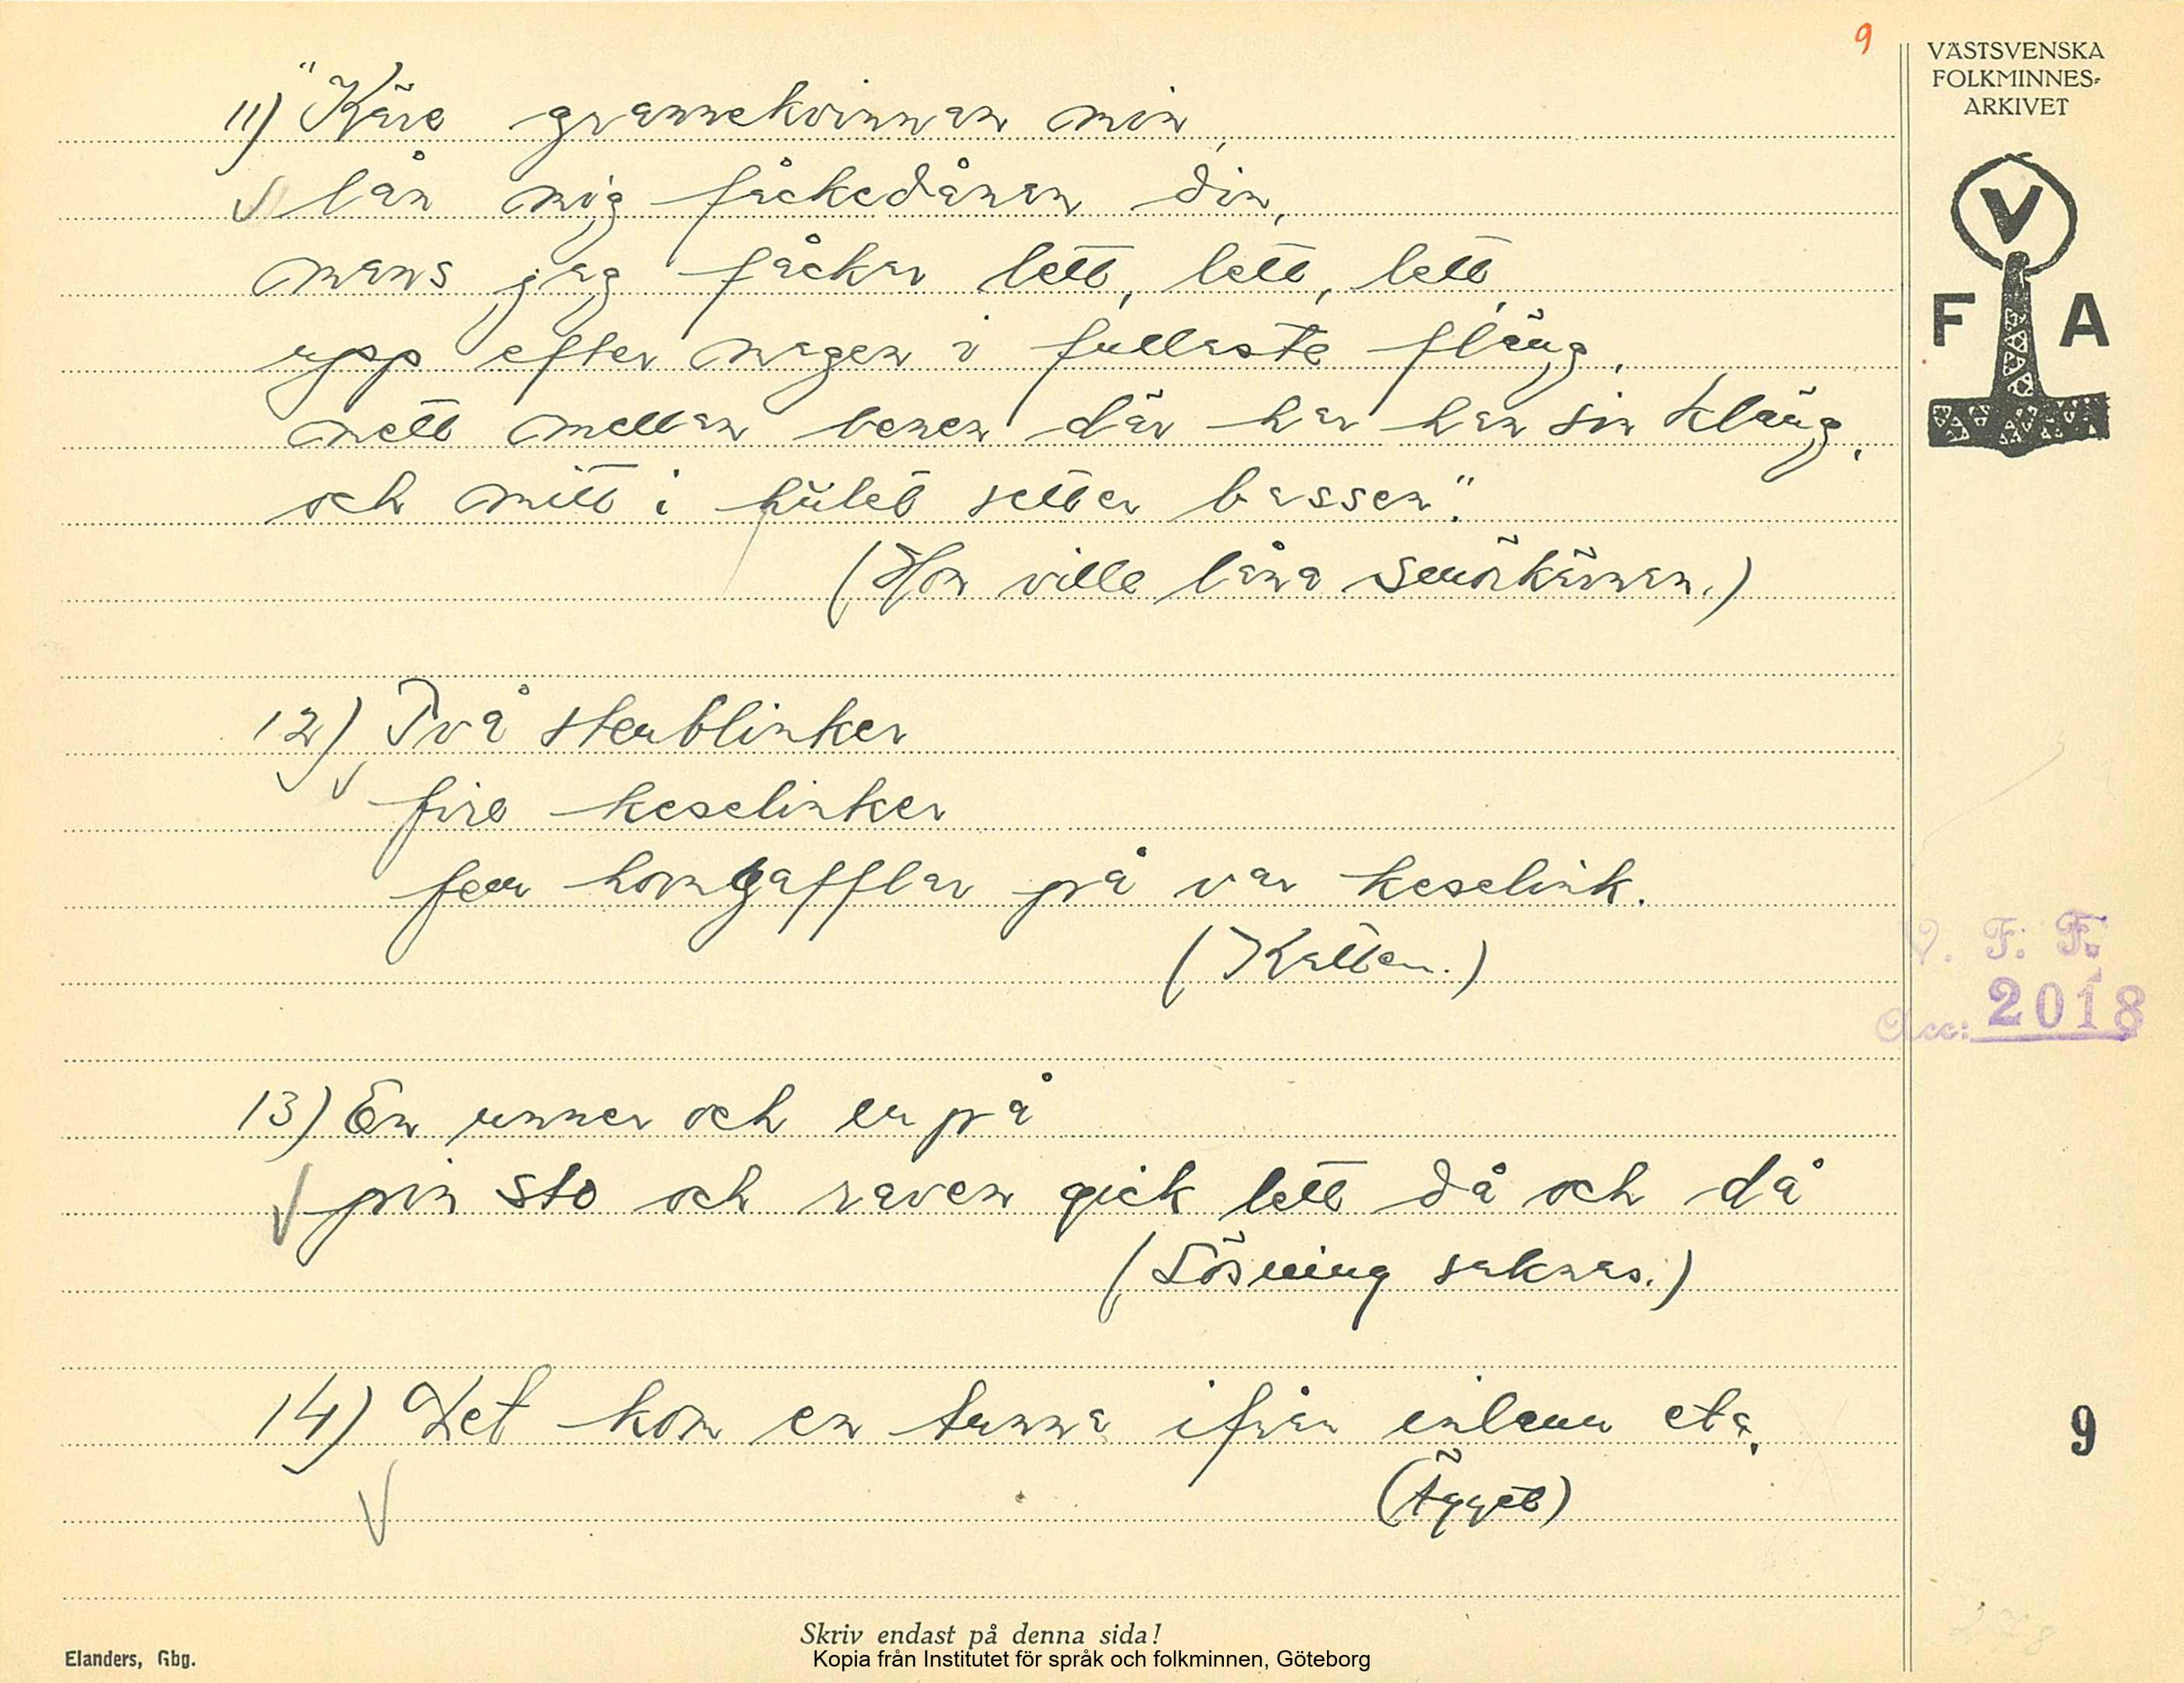 9
VÄSTSVENSKA
FOLKMINNES-
ARKIVET
V
F A
11) "Käre grannekvinnan min,
lån mig fåckedånan din,
mens jag fåckar lett, lett, lett,
upp efter magen i fullaste fläng,
mett mellan benen där har han sin kläng,
och mitt i hålet setter bassen".
(Hon ville låna smörkärnan.)
12) Två stenblinker
fire keselinker
fem horngafflar på var keselink.
(Katten.)
V. F. F.
Acc: 2018
13) En unner och en på
pin sto och raven gick lett då och då
(Lösning saknas.)
14) Det kom en tunna ifrån enlann eta,
(Ägget)
9
Skriv endast på denna sida!
Elanders, Gbg.
Kopia från Institutet för språk och folkminnen, Göteborg